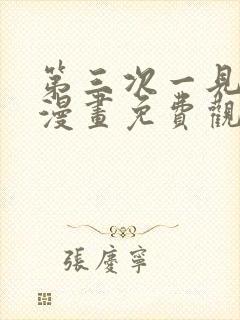 第三次一見
漫畫免費觀
張慶寧